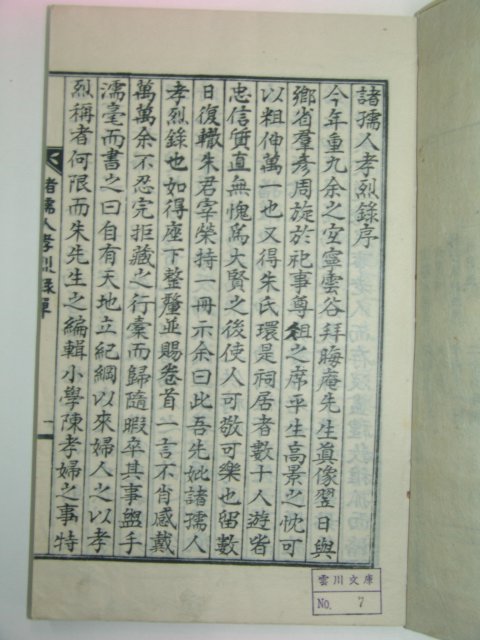 諸孺人孝烈錄序
今年重九余之空寧雲谷拜晦庵先生眞像翌日與
鄕省羣彥周旋於祀事尊俎之席平生高景之忱可
以粗伸萬一也又得朱氏環是祠居者數十人遊皆
忠信質直無愧爲大賢之後使人可敬可樂也留數
日復轍朱君宰榮持一冊示余曰此吾先妣諸孺人
孝烈錄也如得座下整釐並賜卷首一言不肖感戴
萬萬余不忍完拒藏之行橐而歸隨暇卒其事盥手
濡毫而書之曰自有天地立紀綱以來婦人之以孝
烈稱者何限而朱先生之編輯小學陳孝婦之事特
諸孺人孝烈錄單
一
雲川文庫
No. 7